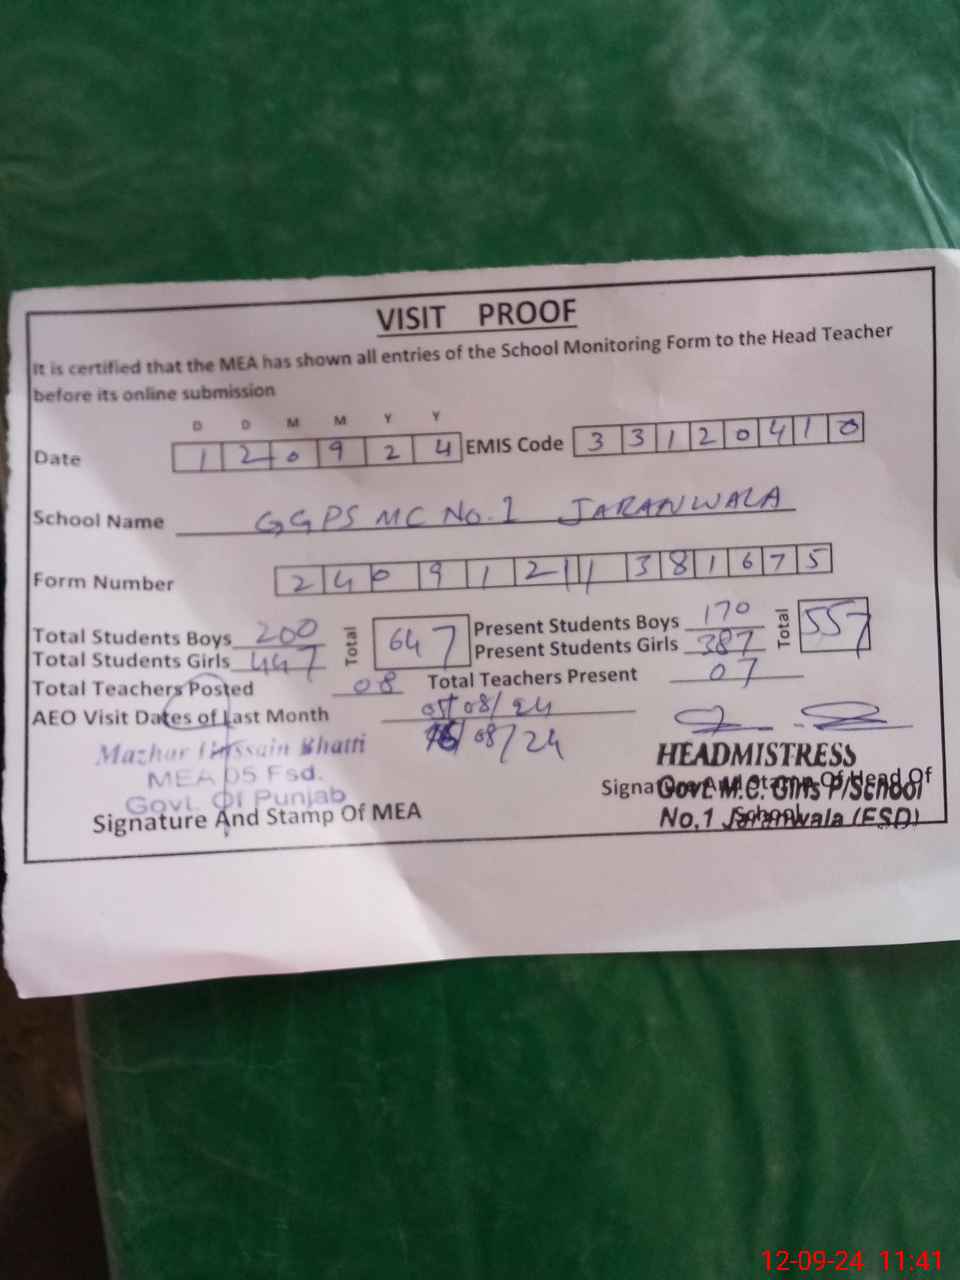 VISIT PROOF
It is certified that the MEA has shown all entries of the School Monitoring Form to the Head Teacher
before its online submission
D D M M Y Y
Date 1 2 0 9 2 4 EMIS Code 3 3 1 2 0 4 1 0
School Name GGPS MC No.1 JARANWALA
Form Number 2 4 0 9 1 2 1 1 3 8 1 6 7 5
Total Students Boys 200 Total 647 Present Students Boys 170 Total 557
Total Students Girls 447 Present Students Girls 387
Total Teachers Posted 08 Total Teachers Present 07
AEO Visit Dates of Last Month 05/08/24
/08/24
Mazhar Hussain Bhatti
MEA 05 Fsd.
Govt. Of Punjab
Signature And Stamp Of MEA
HEADMISTRESS
Signature And Stamp Of Head Of
School
Govt. M.C. Girls P/School
No.1 Jaranwala (FSD)
12-09-24 11:41